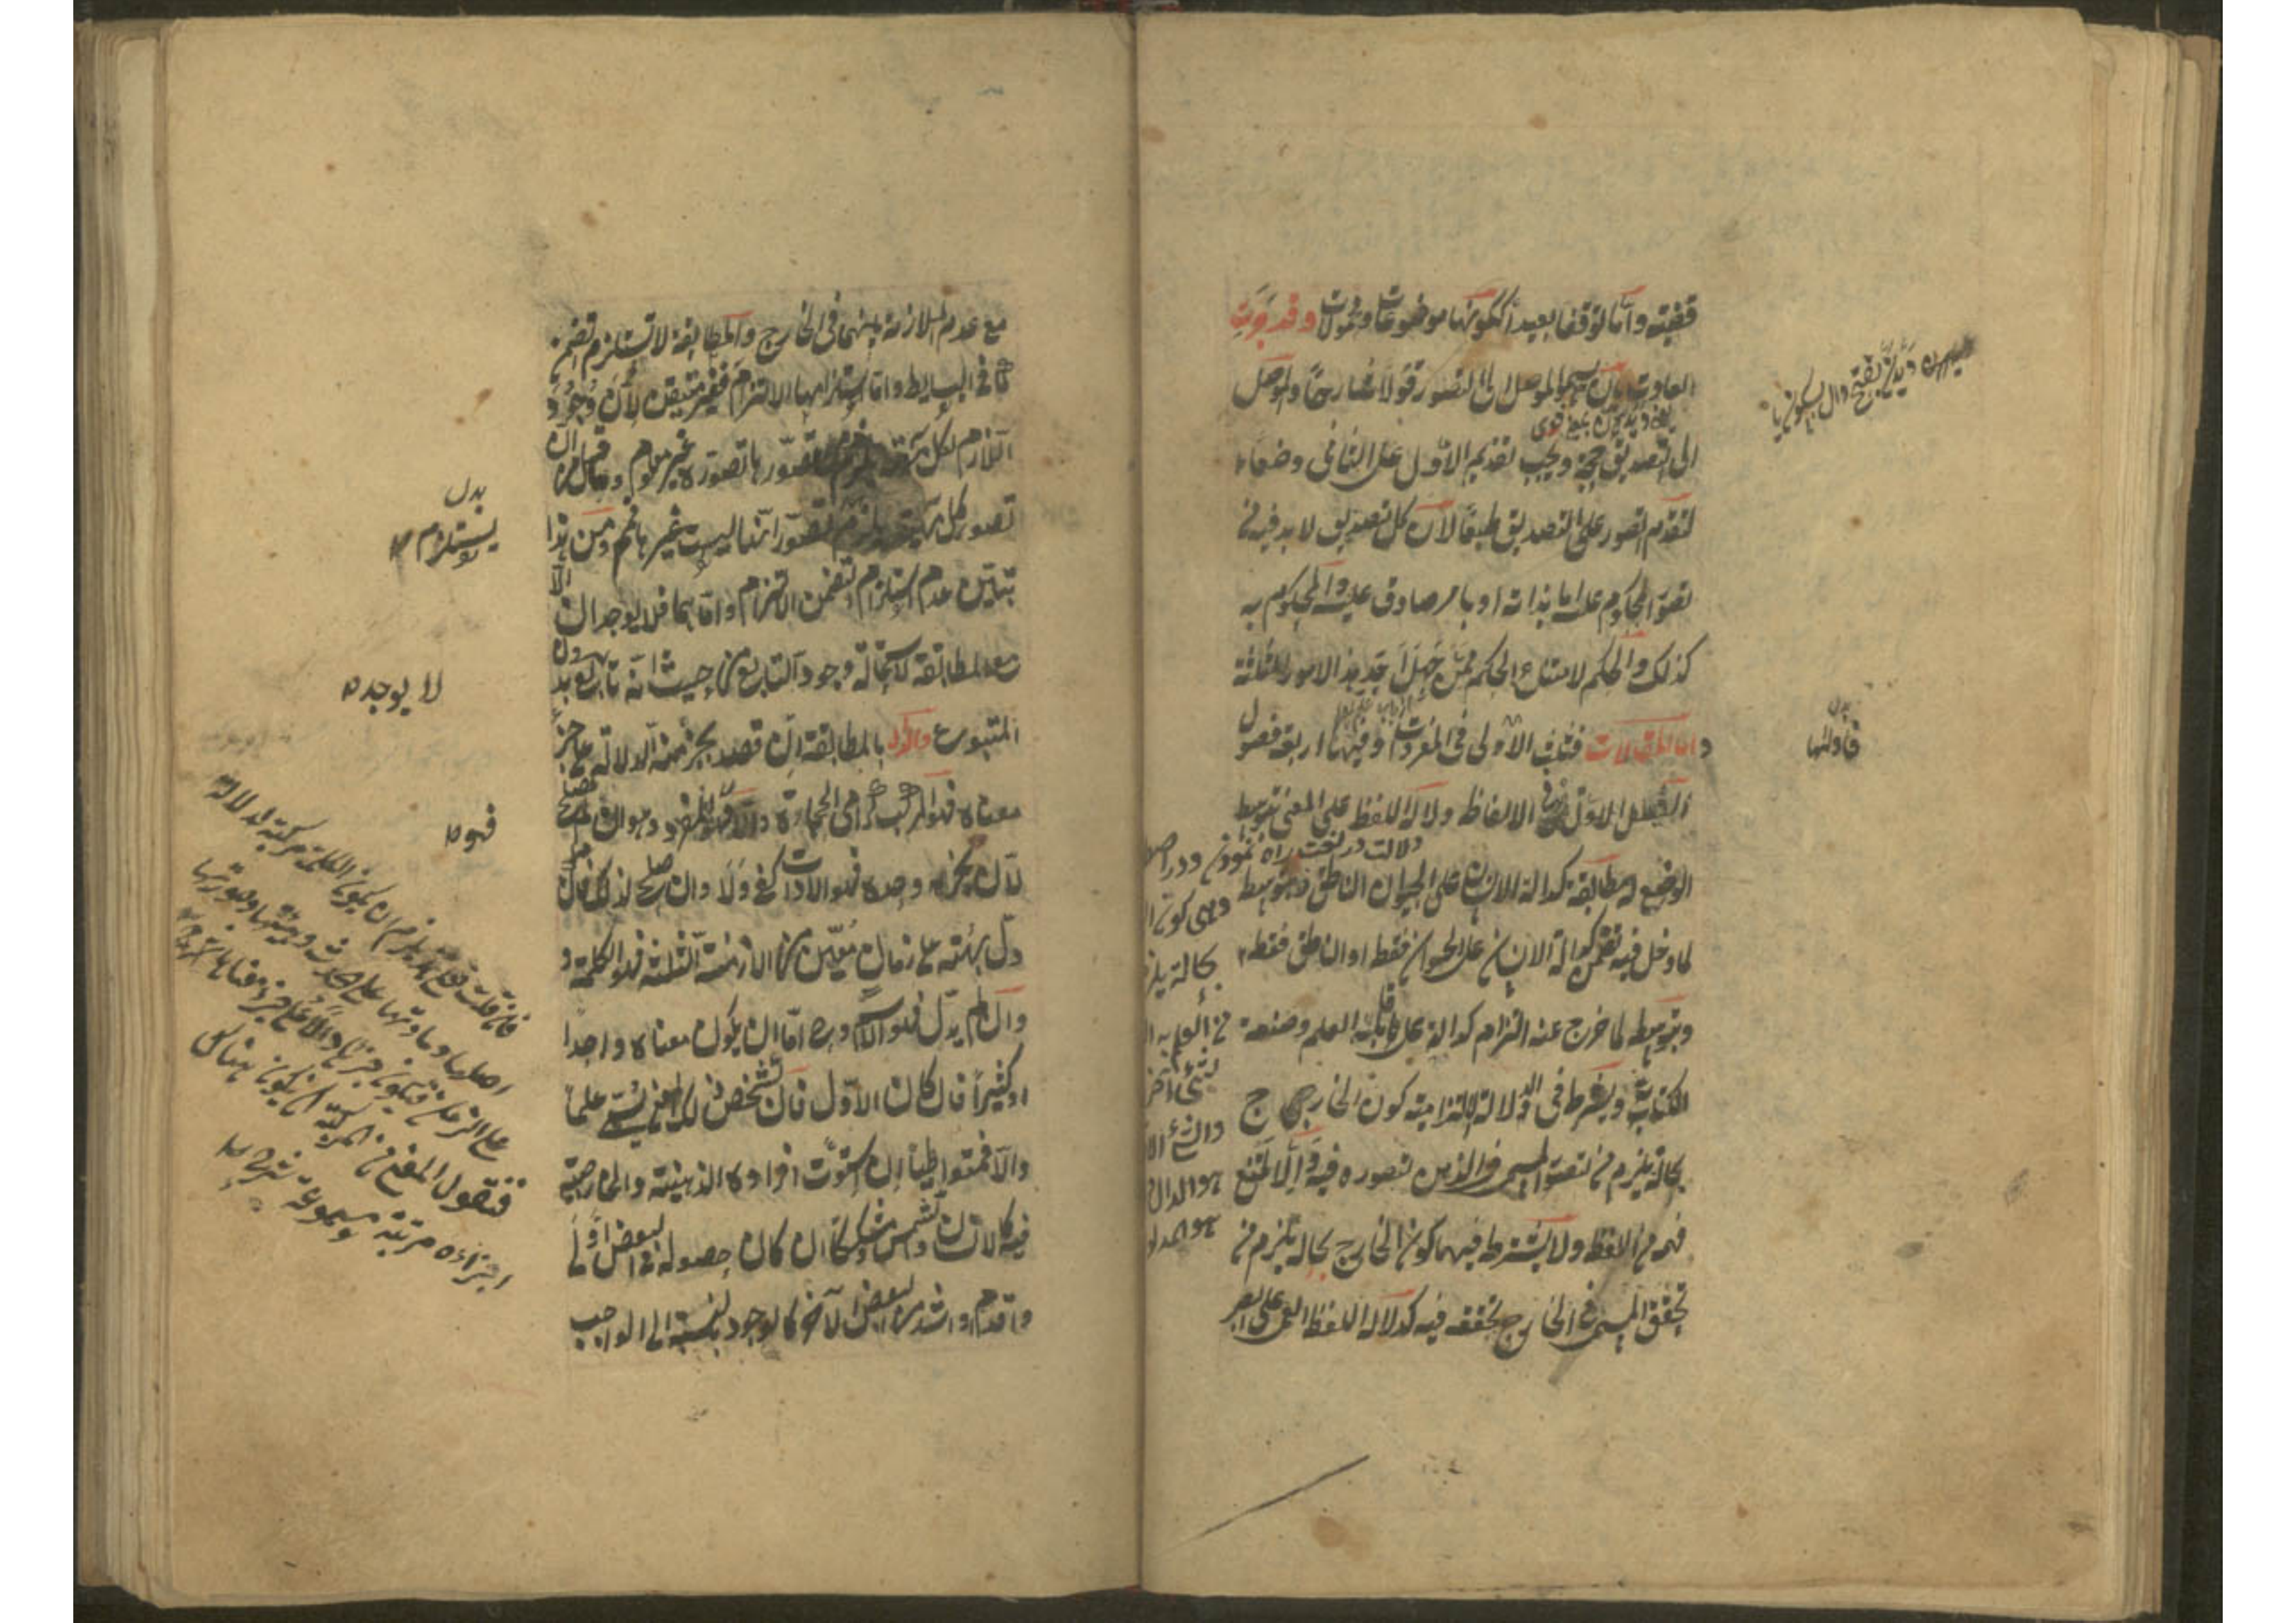 قضية واما توقفا بعيدا ككونها موضوعات ومحمولات وقد جرت
العادة بان يسمى الموصل الى التصور قولا شارحا والموصل
الى التصديق حجة ويجب تقديم الاول على الثانى وضعا
لتقدم التصور على التصديق طبعا لان كل تصديق لا بد فيه من
تصور المحكوم عليه اما بذاته او بامر صادق عليه والمحكوم به
كذلك والحكم لامتناع الحكم ممن جهل احد هذه الامور الثلثة
واما المقالات فثلث الاولى فى المفردات وفيها اربعة فصول
الفصل الاول فى الالفاظ دلالة اللفظ على المعنى بتوسط
الوضع له مطابقة كدلالة الانسان على الحيوان الناطق وبتوسط
لما دخل فيه تضمن كدلالة الانسان على الحيوان فقط او الناطق فقط
وبتوسطه لما خرج عنه التزام كدلالة على قابل العلم وصنعة
الكتابة ويشترط فى الدلالة الالتزامية كون الخارج
بحالة يلزم من تصور المسمى فى الذهن تصوره فيه والا لامتنع
فهمه من اللفظ ولا يشترط فيهما كون الخارج بحاله يلزم من
تحقق المسمى فى الخارج تحققه فيه كدلالة اللفظ العمى على البصر
بدل
فأولها
دلالت در لغت راه نمودن ودر اصطلاح
وهى كون
بحالة يلزم
من العلم به
لشئ آخر
والشئ الا
هو الدال
هو المدلو
مع عدم الملازمة بينهما فى الخارج والمطابقة لا تستلزم تضمن
كما فى البسايط واما استلزامها الالتزام فغير متيقن لان وجود
اللازم لكل ماهية يلزم من تصورها تصوره غير معلوم وما قيل ان
تصور كل ماهية يستلزم تصور انها ليست غيرها فمم ومن هذا
تبين عدم استلزام التضمن الالتزام واما هما فلا يوجدان الا
مع المطابقة لاستحالة وجود التابع من حيث انه تابع بدون
المتبوع والدال بالمطابقة ان قصد بجزء منه الدلالة على جزء
معناه فهو المركب كرامى الحجارة والا فهو المفرد وهو ان لم يصلح
لان يخبر به وحده فهو الاداة كفى ولا وان صلح لذلك فان
دل بهيئته على زمان معين من الازمنة الثلثة فهو الكلمة و
وان لم يدل فهو الاسم وح اما ان يكون معناه واحدا
او كثيرا فان كان الاول فان تشخص ذلك المعنى يسمى علما
والا فمتواطيا ان استوت افراده الذهنية والخارجية
فيه كالانسان والشمس ومشككا ان كان حصوله فى البعض اولى
واقدم واشد من البعض الآخر كالوجود بالنسبة الى الواجب
بدل
يستلزم
لا يوجد
فهو
فان قلت فعلى هذا يلزم ان يكون الكلمة مركبة لدلالة
فنقول المعنى من المركبة ان يكون هناك
اجزاء مرتبة مسموعة